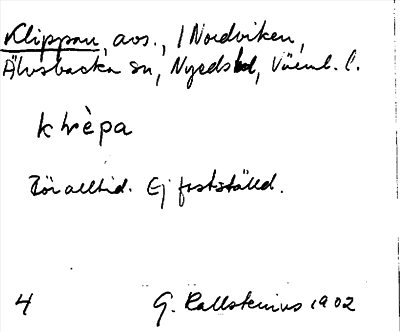 Klippan, avs., i Nordviken,
Älvsbacka sn, Nyeds hd, Värml. l.
klèpa
Bör alltid. Ej fastställd.
4 G. Kallstenius 1902